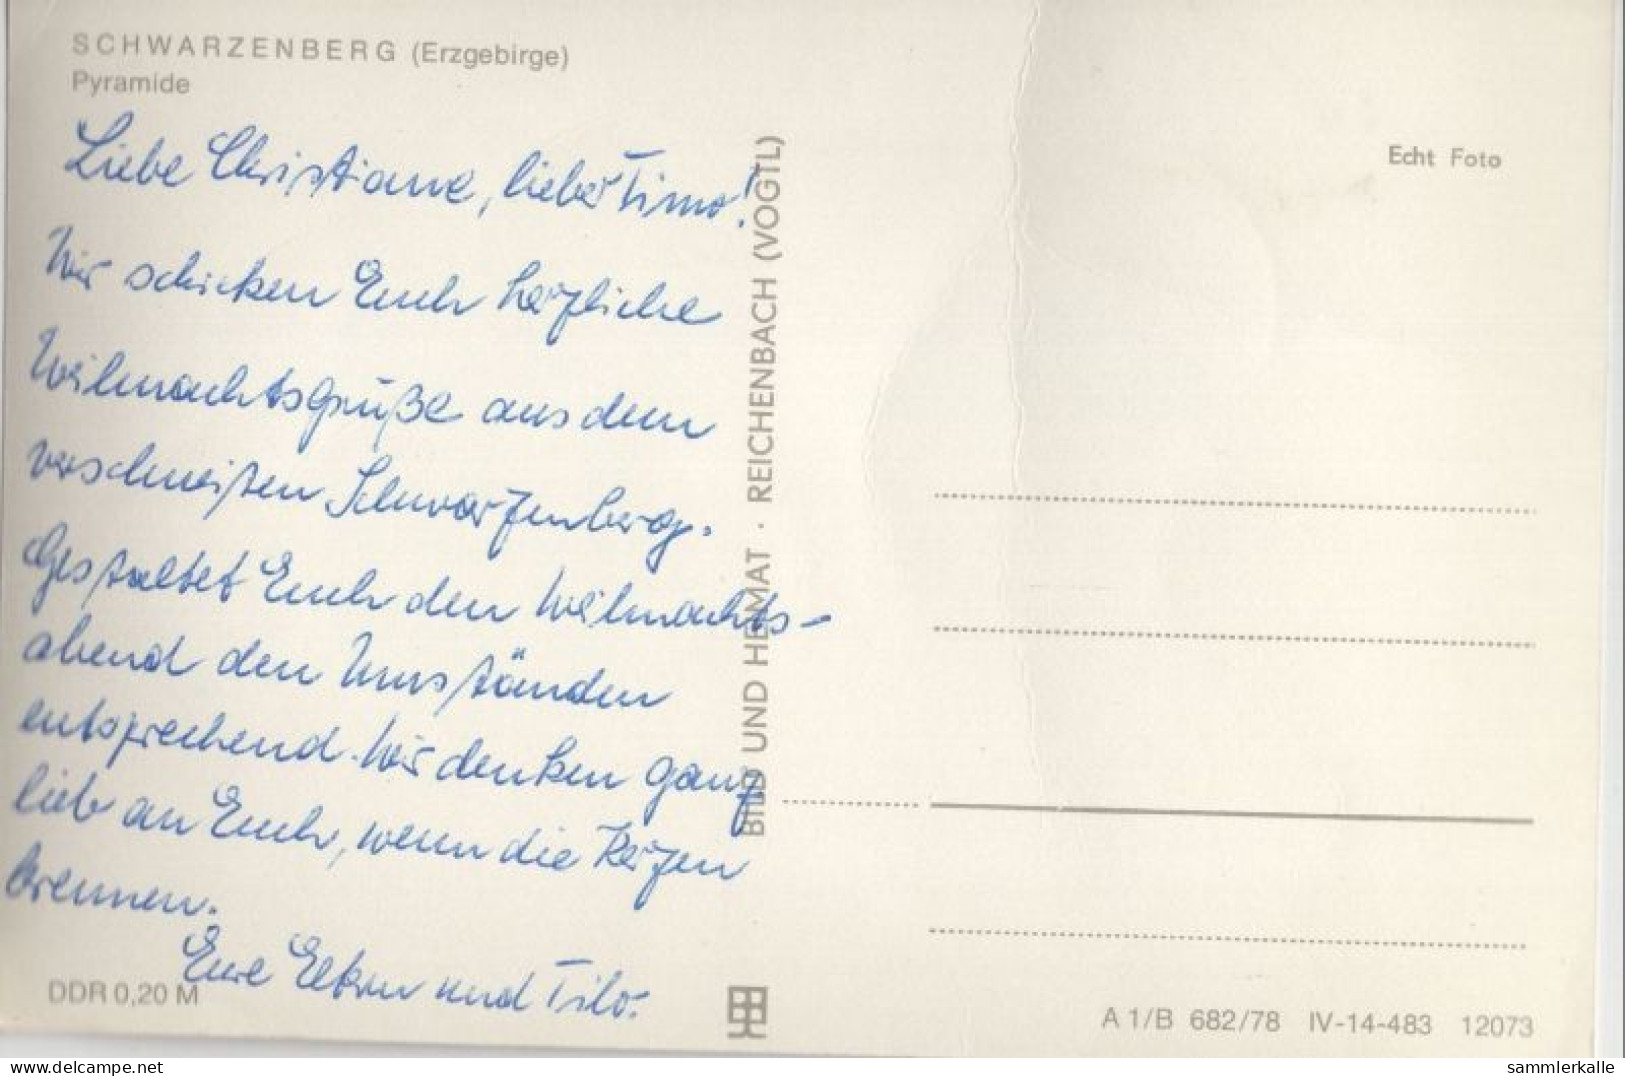 SCHWARZENBERG (Erzgebirge)
Pyramide
Liebe Christiane, lieber Timo!
Wir schicken Euch herzliche
Weihnachtsgrüße aus dem
verschneiten Schwarzenberg.
Gestaltet Euch den Weihnachts-
abend den Umständen
entsprechend. Wir denken ganz
lieb an Euch, wenn die Kerzen
brennen.
Eure Eltern und Tilo.
DDR 0,20 M
BILD UND HEIMAT · REICHENBACH (VOGTL)
Echt Foto
A 1/B 682/78 IV-14-483 12073
delcampe.net
sammlerkalle